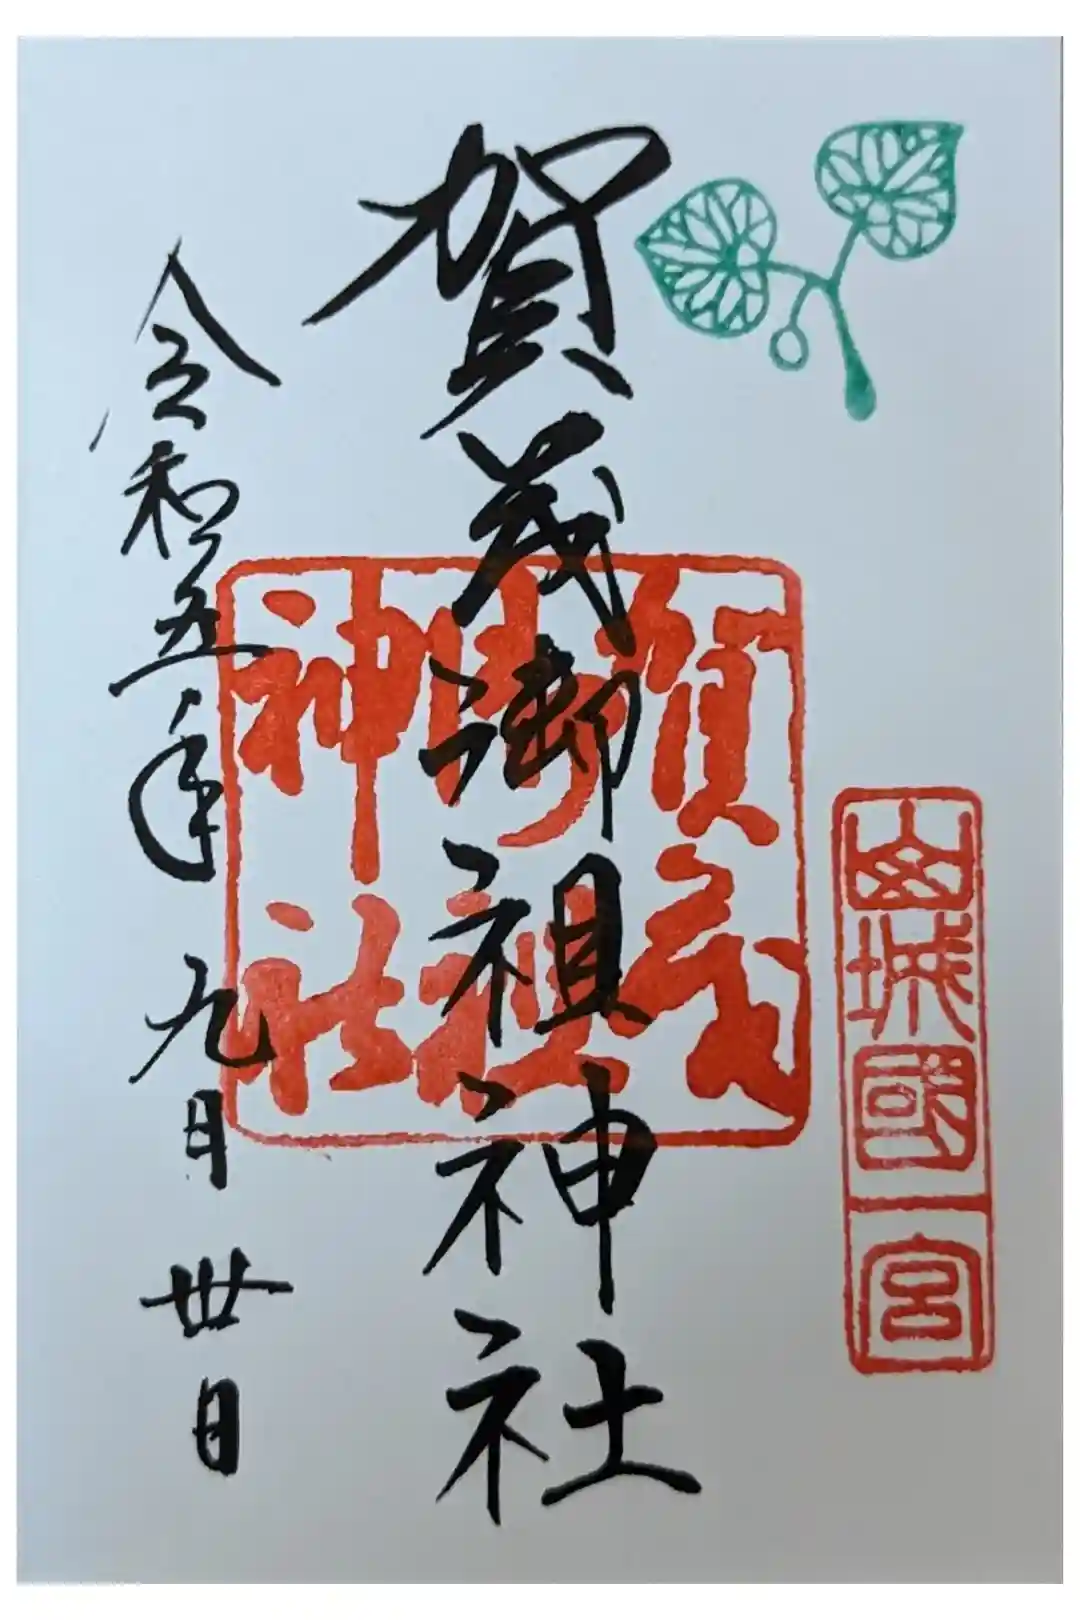 山城國一宮
賀茂御祖神社
賀茂
御祖
神社
令和五年九月卅日